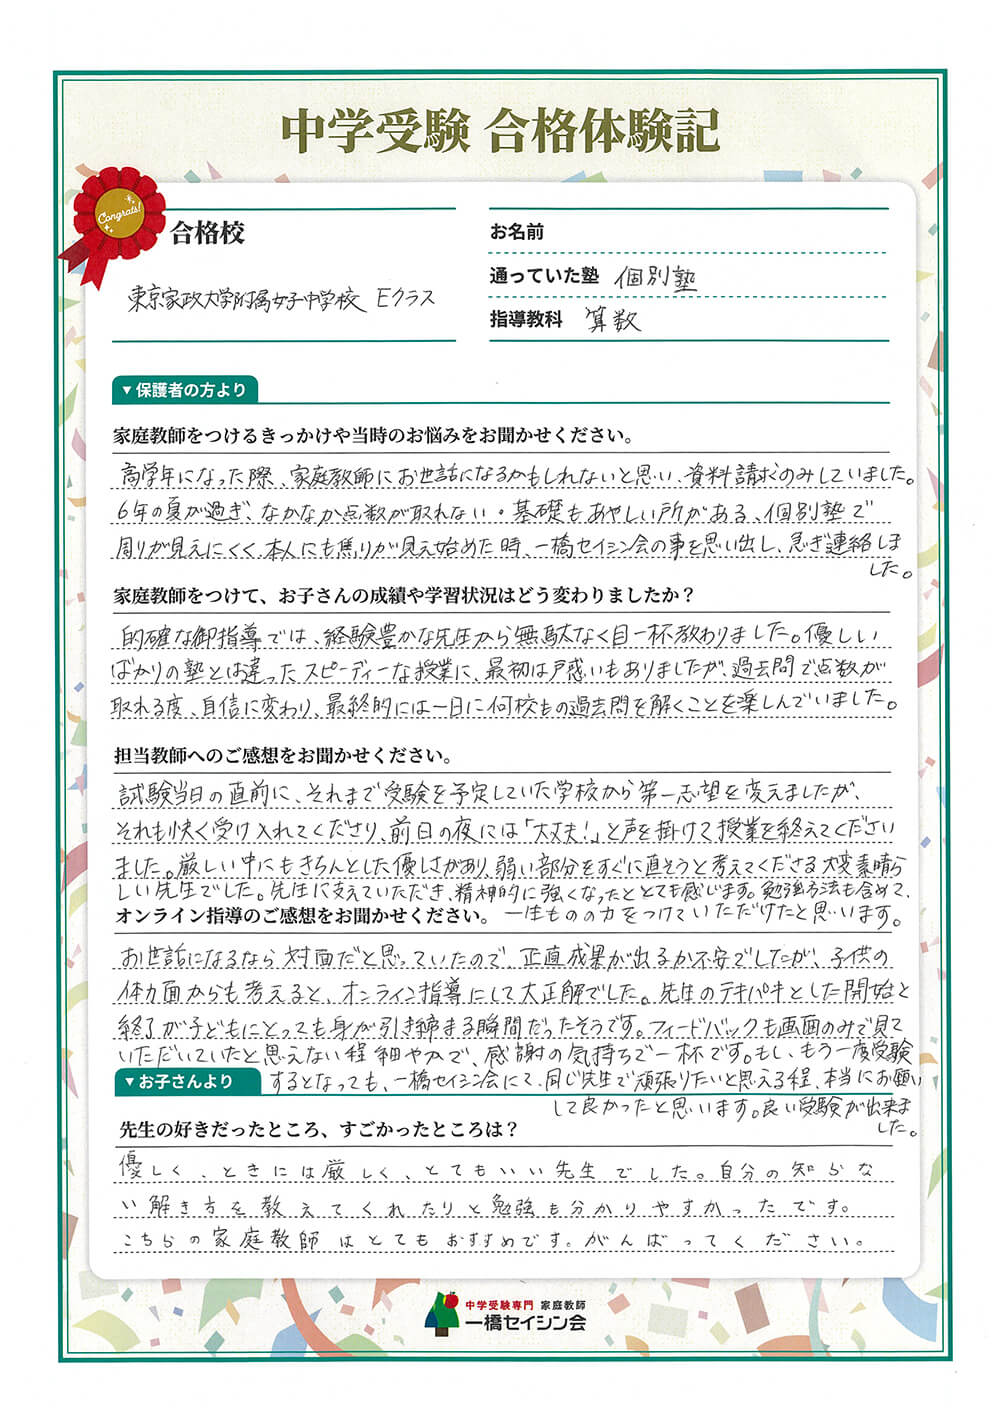 中学受験 合格体験記
Congrats!
合格校
東京家政大学附属女子中学校 Eクラス
お名前
通っていた塾 個別塾
指導教科 算数
▼保護者の方より
家庭教師をつけるきっかけや当時のお悩みをお聞かせください。
高学年になった際、家庭教師にお世話になるかもしれないと思い、資料請求のみしていました。
6年の夏が過ぎ、なかなか点数が取れない。基礎もあやしい所がある、個別塾で
周りが見えにくく本人にも焦りが見え始めた時、一橋セイシン会の事を思い出し、急ぎ連絡しま
した。
家庭教師をつけて、お子さんの成績や学習状況はどう変わりましたか？
的確な御指導では、経験豊かな先生から無駄なく目一杯教わりました。優しい
ばかりの塾とは違ったスピーディーな授業に、最初は戸惑いもありましたが、過去問で点数が
取れる度、自信に変わり、最終的には一日に何校もの過去問を解くことを楽しんでいました。
担当教師へのご感想をお聞かせください。
試験当日の直前に、それまで受験を予定していた学校から第一志望を変えましたが、
それも快く受け入れてくださり、前日の夜には「大丈夫！」と声を掛けて授業を終えてください
ました。厳しい中にもきちんとした優しさがあり、弱い部分をすぐに直そうと考えてくださる大変素晴ら
しい先生でした。先生に支えていただき、精神的に強くなったととても感じます。勉強方法も含めて、
オンライン指導のご感想をお聞かせください。 一生ものの力をつけていただけたと思います。
お世話になるなら対面だと思っていたので、正直成果が出るか不安でしたが、子供の
体力面からも考えると、オンライン指導にして大正解でした。先生のテキパキとした開始と
終了が子どもにとっても身が引き締まる瞬間だったそうです。フィードバックも画面のみで見て
いただいていたと思えない程細やかで、感謝の気持ちで一杯です。もし、もう一度受験
▼お子さんより するとなっても、一橋セイシン会にて、同じ先生で頑張りたいと思える程、本当にお願い
して良かったと思います。良い受験が出来ま
した。
先生の好きだったところ、すごかったところは？
優しく、ときには厳しく、とてもいい先生でした。自分の知らな
い解き方を教えてくれたりと勉強も分かりやすかったです。
こちらの家庭教師はとてもおすすめです。がんばってください。
中学受験専門 家庭教師
一橋セイシン会